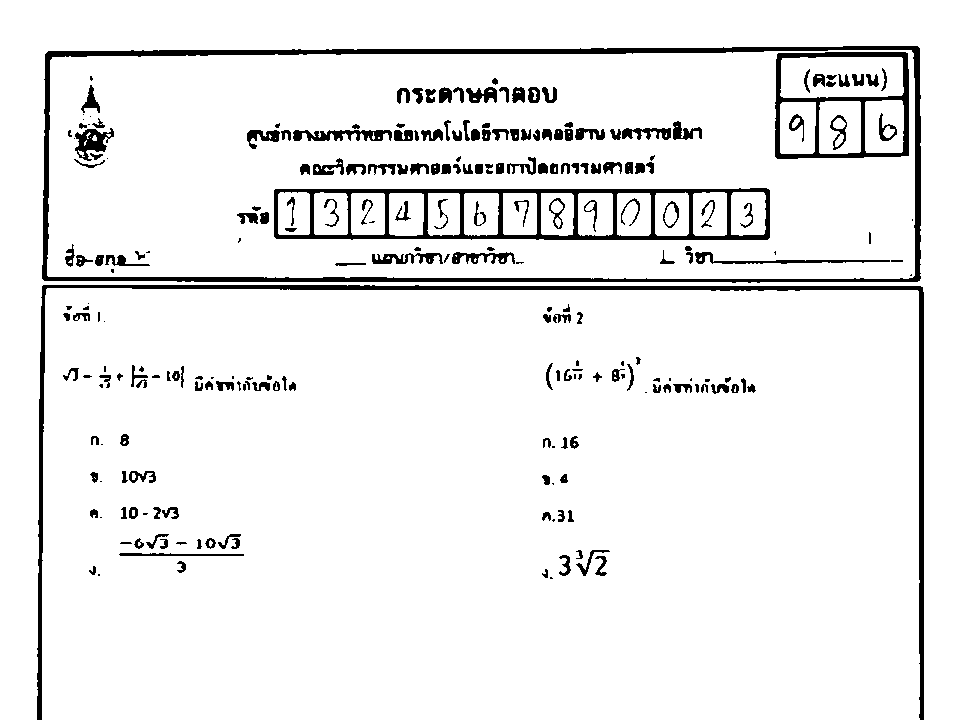 กระดาษคำตอบ
(คะแนน)
986
ศูนย์กลางมหาวิทยาลัยเทคโนโลยีราชมงคลอีสาน นครราชสีมา
คณะวิศวกรรมศาสตร์และสถาปัตยกรรมศาสตร์
รหัส 1324567890023
ชื่อ-สกุล แผนกวิชา/สาขาวิชา วิชา
ข้อที่ 1.
√3 - มีค่าเท่ากับข้อใด
ก. 8
ข. 10√3
ค. 10 - 2√3
ง. (-6√3 - 10√3)/3
ข้อที่ 2
มีค่าเท่ากับข้อใด
ก. 16
ข. 4
ค.31
ง. 3∛2